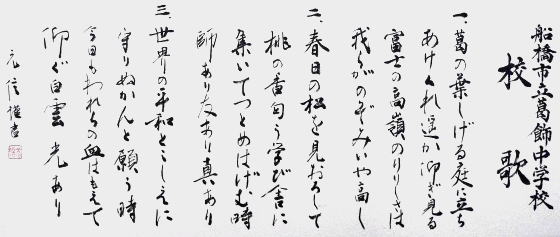 船橋市立葛飾中学校
校歌
一、葛の葉しげる庭に立ち
あけくれ遥か仰ぎ見る
富士の高嶺のりりしさは
我らがのぞみいや高し
二、春日の松を見おろして
桃の香匂う学び舎に
集いてつとめはげむ時
師あり友あり真あり
三、世界の平和とこしえに
守りぬかんと願う時
今日もわれらの血はもえて
仰ぐ白雲光あり
元信謹書